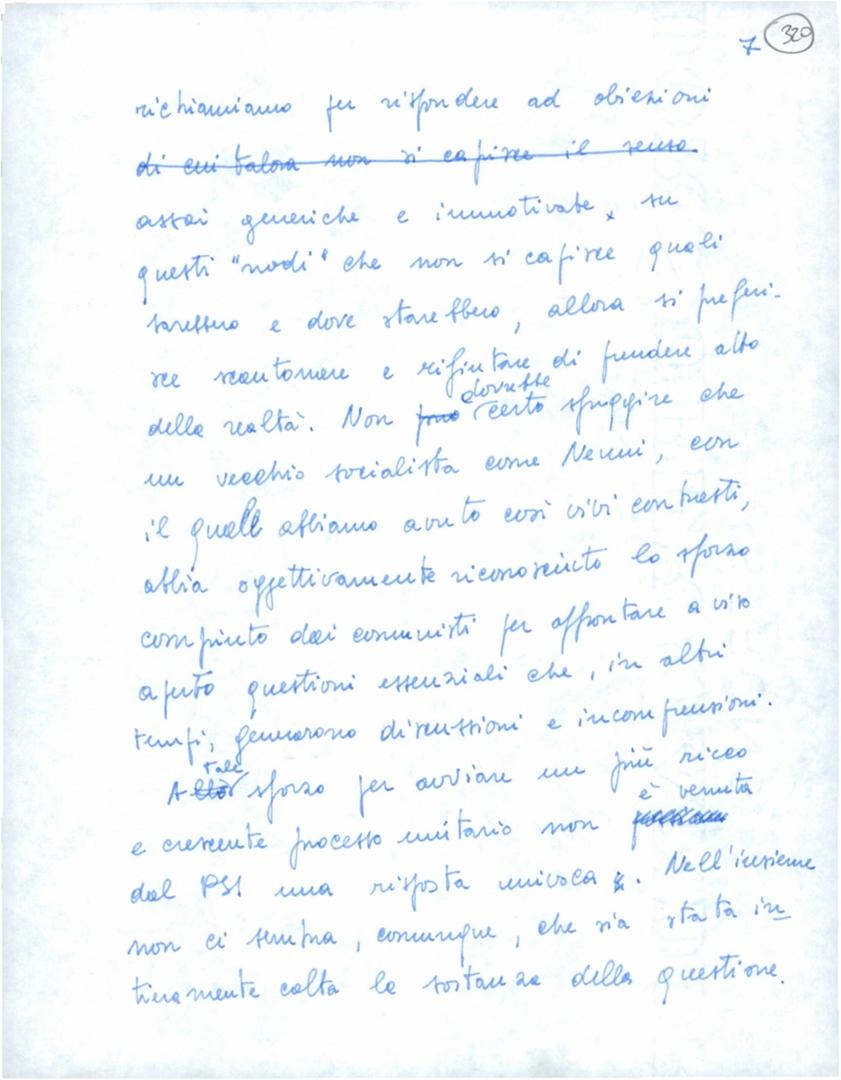 7 320
richiamiamo per rispondere ad obiezioni
di cui talora non si capisce il senso.
assai generiche e immotivate, su
questi "nodi" che non si capisce quali
sarebbero e dove starebbero, allora si preferi-
sce scantonare e rifiutare di prendere atto
dovrebbe
della realtà. Non può certo sfuggire che
un vecchio socialista come Nenni, con
il quale abbiamo avuto così vivi contrasti,
abbia oggettivamente riconosciuto lo sforzo
compiuto dai comunisti per affrontare a viso
aperto questioni essenziali che, in altri
tempi, generarono discussioni e incomprensioni.
tale
A sforzo per avviare un più ricco
è venuta
e crescente processo unitario non
dal PSI una risposta univoca. Nell'insieme
non ci sembra, comunque, che sia stata in
tieramente colta la sostanza della questione.